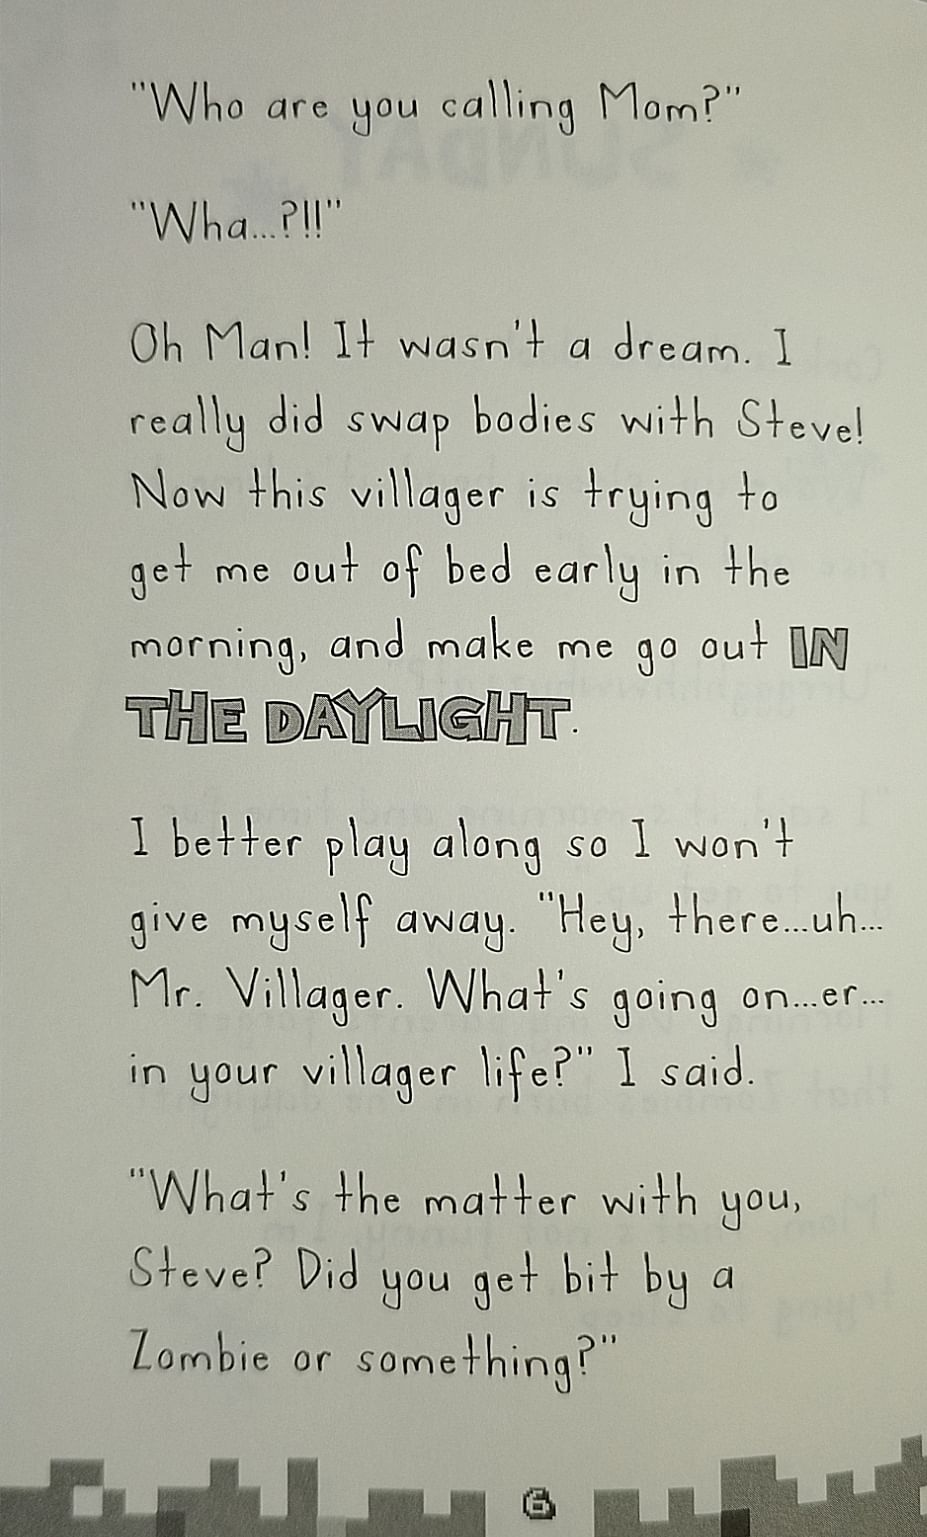 "Who are you calling Mom?"
"Wha...?!!"
Oh Man! It wasn't a dream. I
really did swap bodies with Steve!
Now this villager is trying to
get me out of bed early in the
morning, and make me go out IN
THE DAYLIGHT.
I better play along so I won't
give myself away. "Hey, there...uh...
Mr. Villager. What's going on...er...
in your villager life?" I said.
"What's the matter with you,
Steve? Did you get bit by a
Zombie or something?"
6